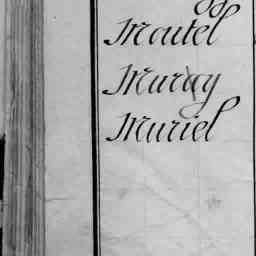 Moutel
Murray
Muriel